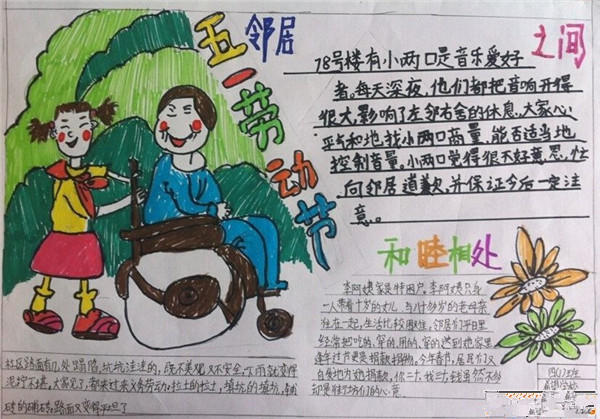 五一劳动节
邻居
之间
78号楼有小两口是音乐爱好
者。每天深夜,他们都把音响开得
很大,影响了左邻右舍的休息。大家心
平气和地找小两口商量,能否适当地
控制音量。小两口觉得很不好意思,忙
向邻居道歉,并保证今后一定注
意。
和睦相处
李阿姨家是特困户。李阿姨只身
一人带着十岁的女儿,与八十多岁的老母亲
住在一起,生活比较困难,邻居们平日里
经常把吃的、穿的、用的,送到她家里
逢年过节更是捐款捐物,今年春节,居民们又
自发地为她捐款,你二十,我三十,钱虽然不多
却是
们的心意
社区路面有几处塌陷,坑坑洼洼的,既不美观又不安全,下雨就变得
泥泞不堪,大家见了,都来过来义务劳动,拉土的拉土,填坑的填坑,
砖的铺砖,路面又变得平坦了
四(1)班